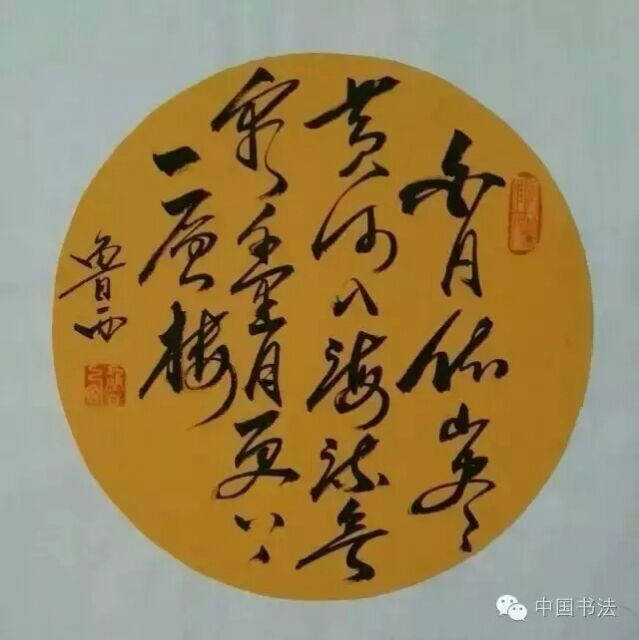 白日依山尽
黄河入海流欲
穷千里目更上
一层楼
鲁西
中国书法